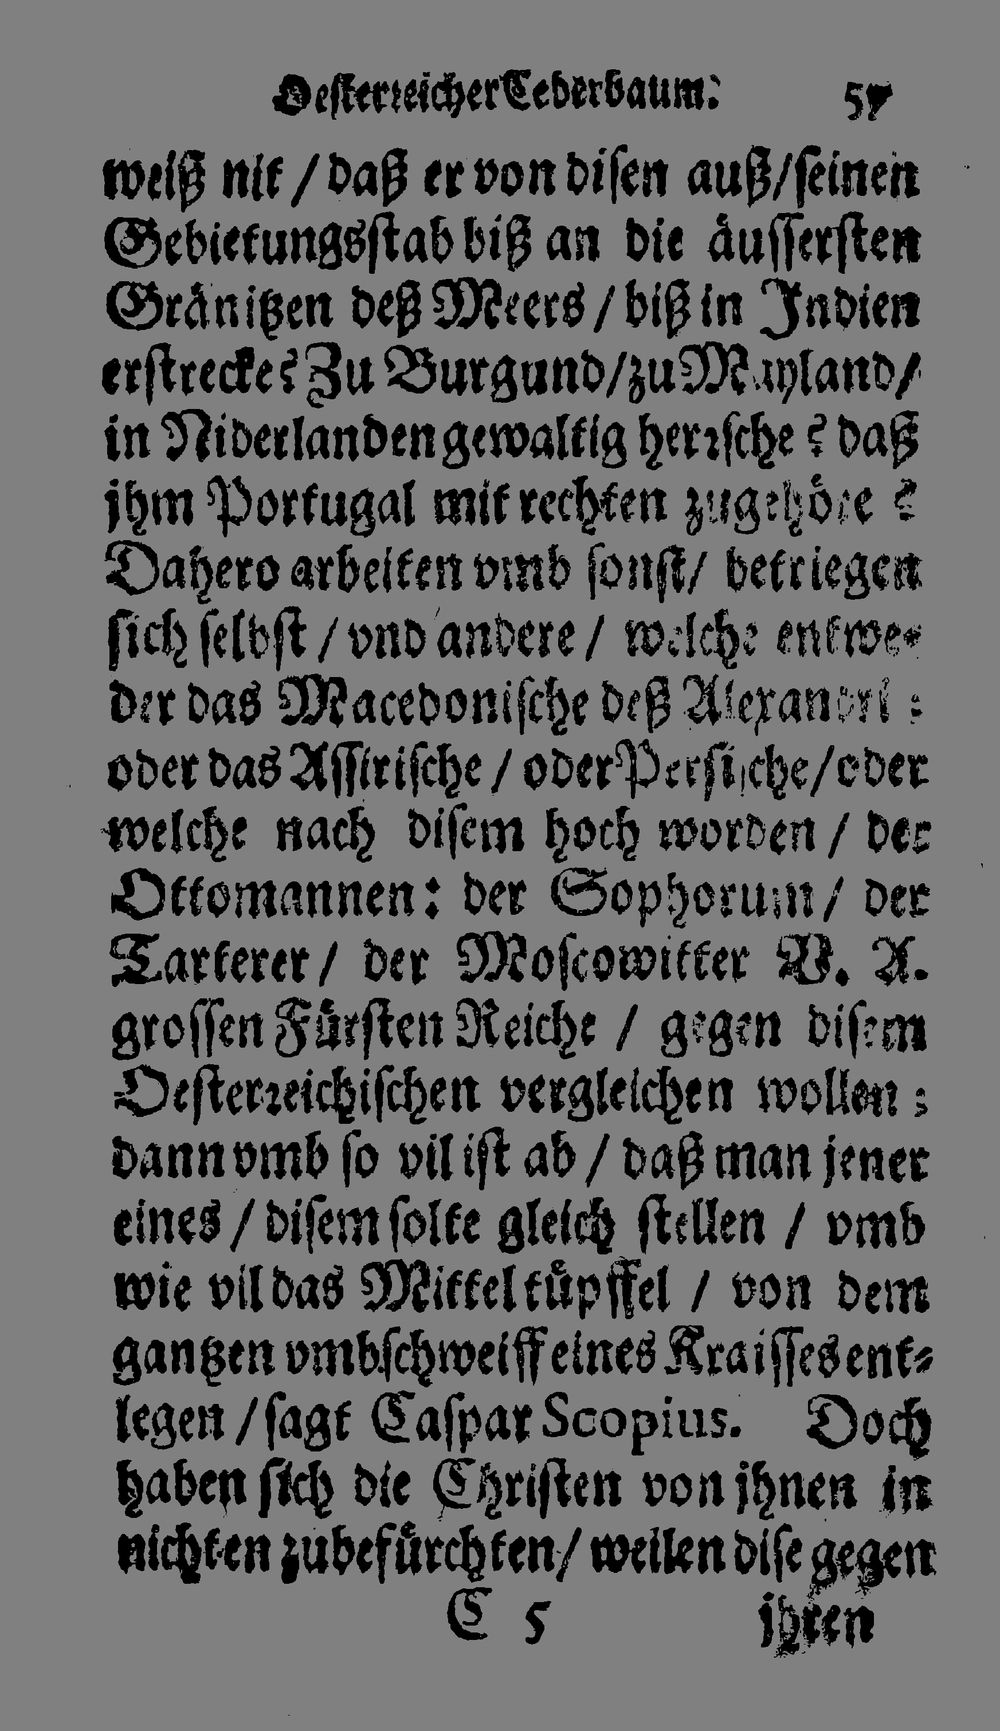 Oesterreicher Cederbaum. 57
weiß nit / daß er von disen auß / seinen
Gebietungsstab biß an die äussersten
Gränitzen deß Meers / biß in Indien
erstrecke? Zu Burgund / zu Mayland /
in Niderlanden gewaltig herrsche? daß
jhm Portugal mit rechten zugehöre?
Dahero arbeiten vmb sonst / betriegen
sich selbst / vnd andere / welche entwe-
der das Macedonische deß Alexandri:
oder das Assirische / oder Persische / oder
welche nach disem hoch worden / der
Ottomannen: der Sophorum / der
Tarterer / der Moscowitter V. A.
grossen Fürsten Reiche / gegen disem
Oesterreichischen vergleichen wollen:
dann vmb so vil ist ab / daß man jener
eines / disem solte gleich stellen / vmb
wie vil das Mittel tüpffel / von dem
gantzen vmbschweiff eines Kraisses ent-
legen / sagt Caspar Scopius. Doch
haben sich die Christen von jhnen in
nichten zubefürchten / weilen dise gegen
C 5 jhren